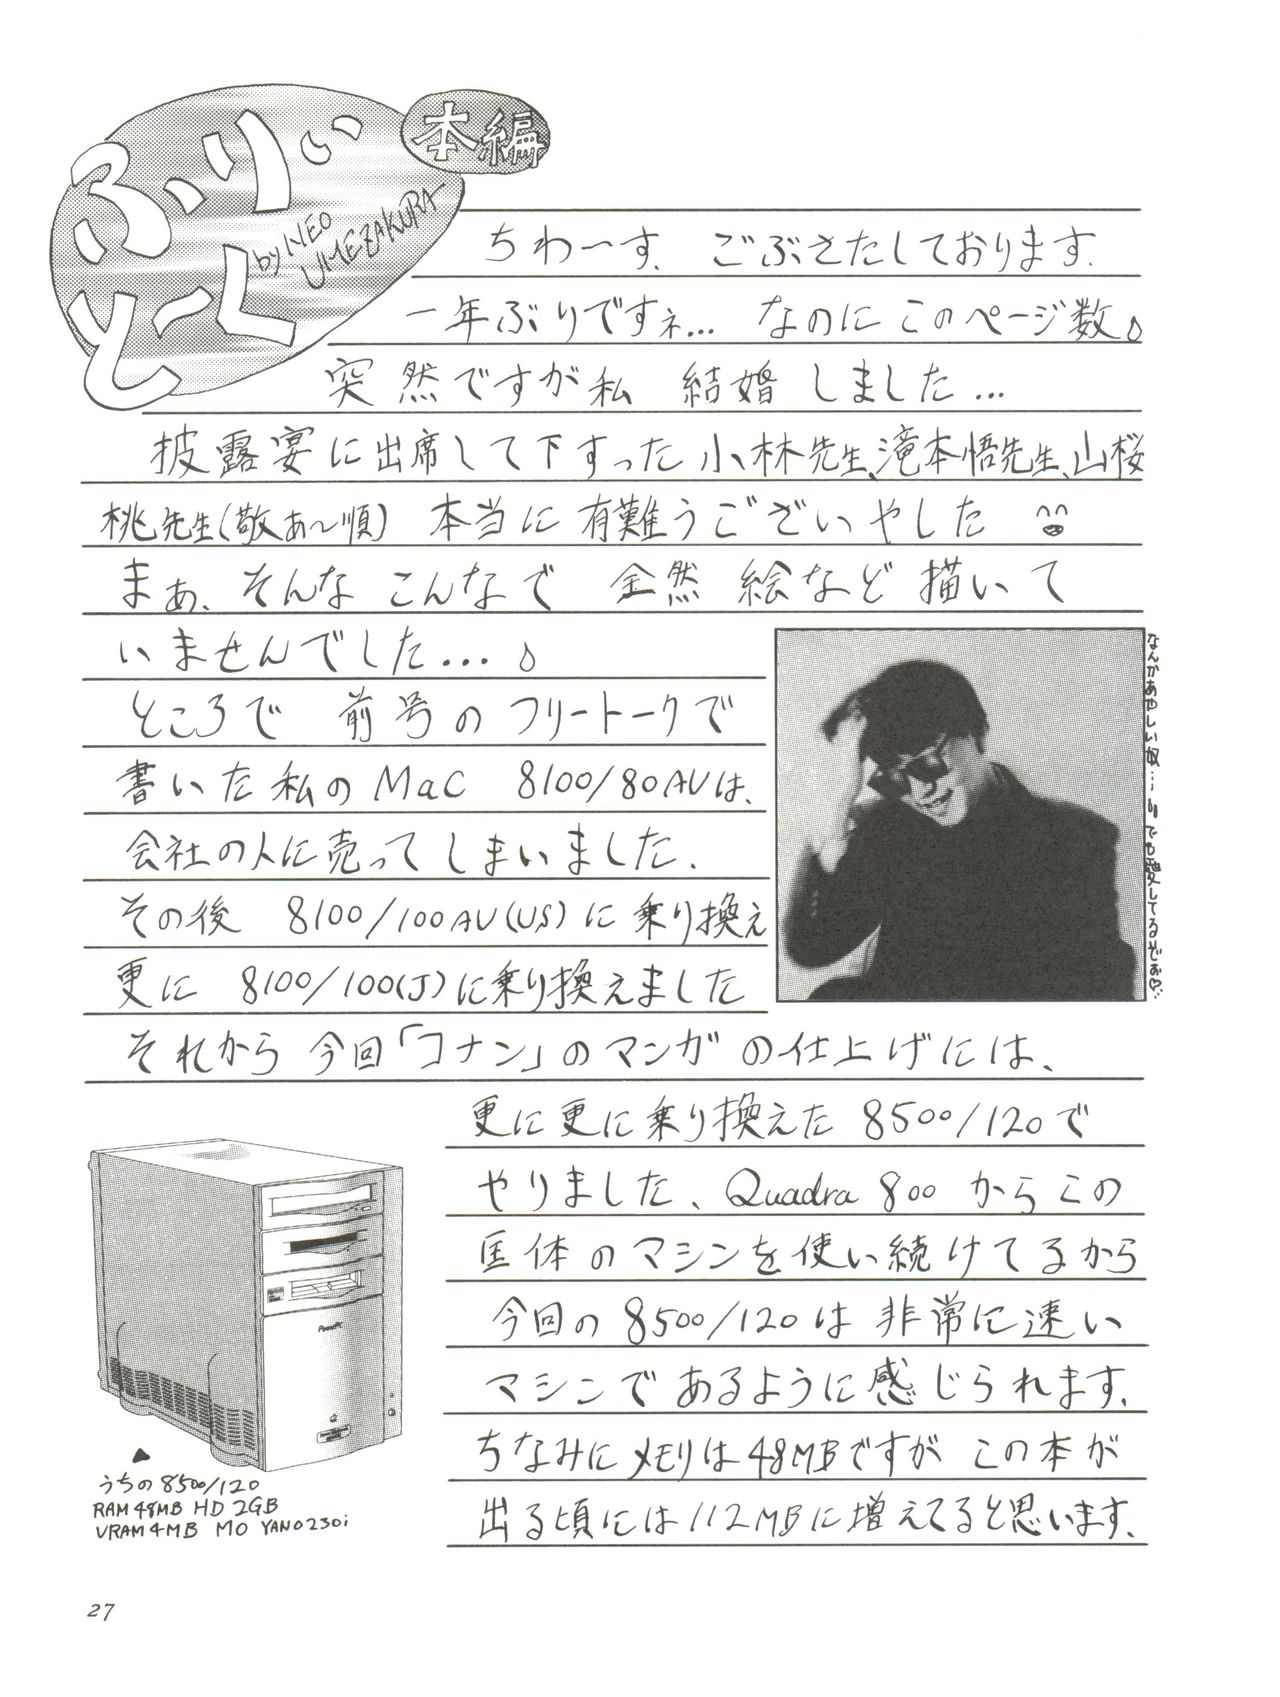 ふりぃ
とーく
by NEO
UMEZAKURA
本編
ちわ〜す、ごぶさたしております。
一年ぶりですネ… なのにこのページ数♪
突然ですが私 結婚しました…
披露宴に出席して下すった小林先生、滝本悟先生、山桜
桃先生(敬あ〜順) 本当に有難うございやした ^^
まぁ、そんなこんなで 全然 絵など描いて
いませんでした…♪
ところで 前号のフリートークで
書いた私のMac 8100/80AVは、
会社の人に売ってしまいました、
その後 8100/100AV(US)に乗り換え
更に 8100/100(J)に乗り換えました
それから 今回「コナン」のマンガの仕上げには、
更に更に乗り換えた 8500/120で
やりました、Quadra 800 からこの
匡体のマシンを使い続けてるから
今回の8500/120は非常に速い
マシンであるように感じられます、
ちなみにメモリは48MBですが この本が
出る頃には112MBに増えてると思います、
なんかあやしい奴…〃でも愛してるぞぉ♡
PowerPC
うちの8500/120
RAM 48MB HD 2GB
VRAM 4MB MO YANO230i
27